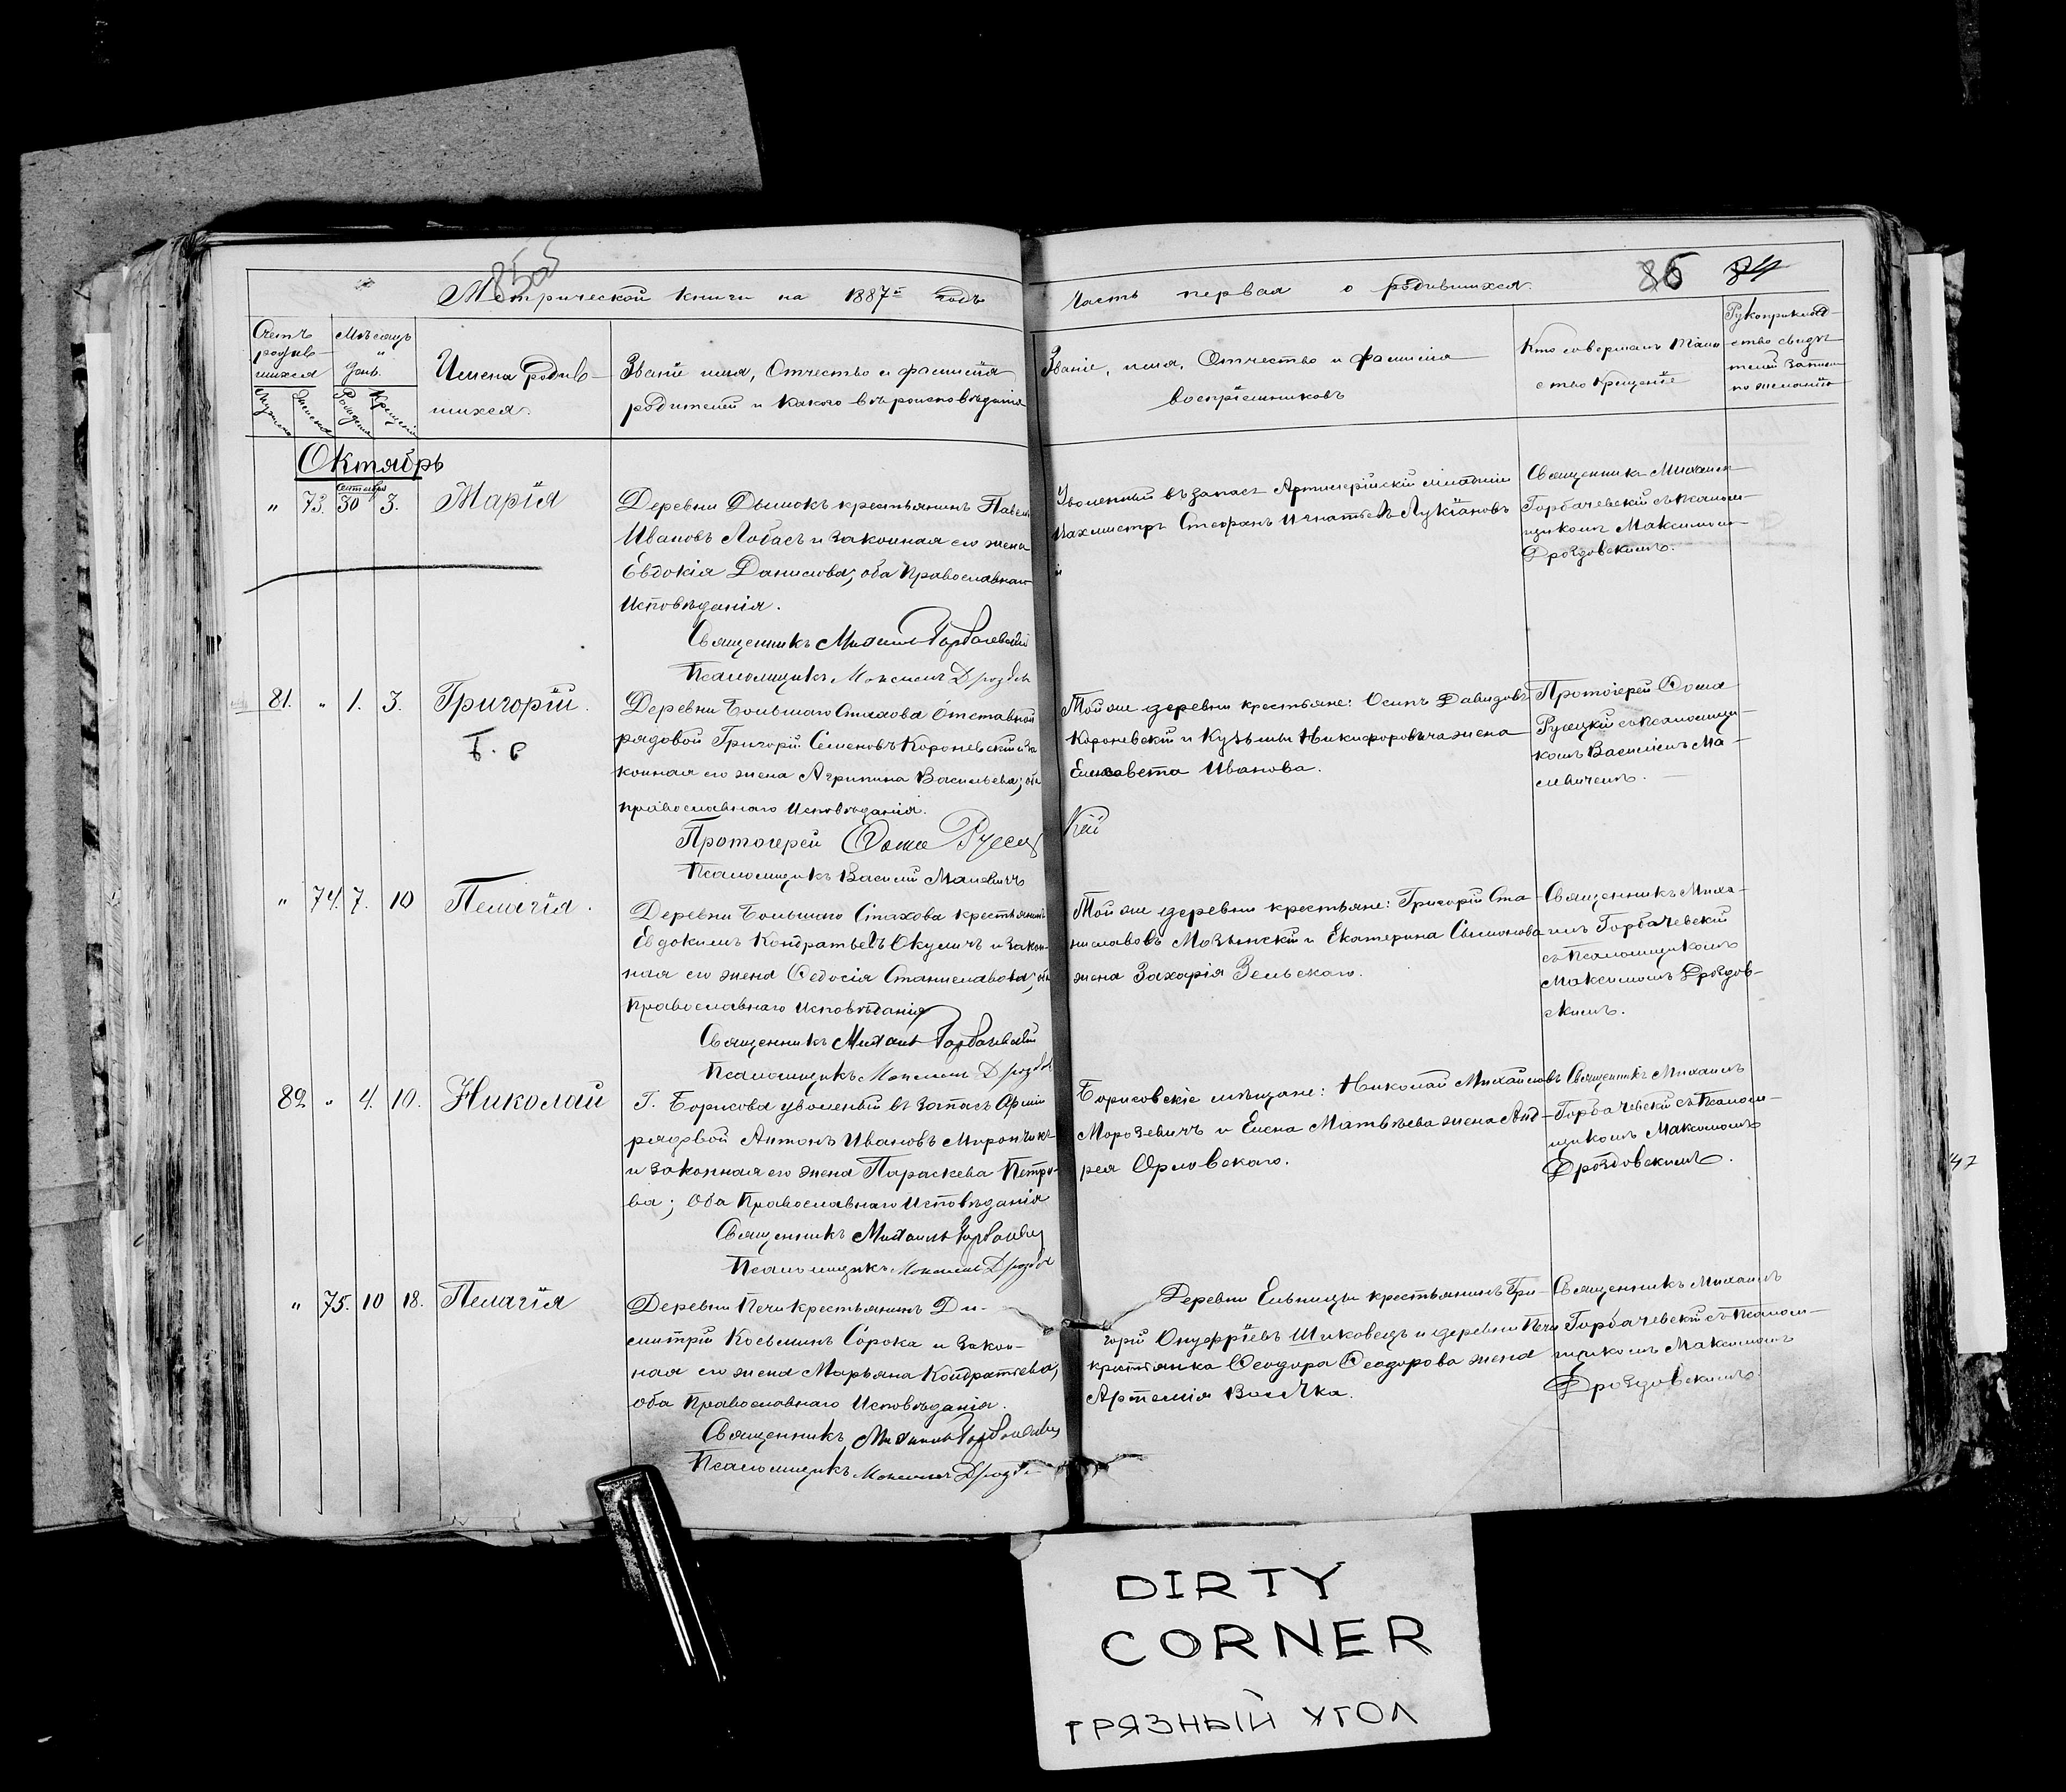 Метрической книги на 1887й годъ
Часть первая о родившихся.
86 84
Счетъ родив-
шихся
Мѣсяцъ
и
день.
Мужеска
Женска
Рожденія
Крещенія
Имена родив-
шихся.
Званіе имя, Отчество и фамилія
родителей и какого вѣроисповѣданія
Званіе, имя, Отчество и фамилія
воспріемниковъ
Кто совершалъ таин
ство крещенія
Рукоприклад-
ство свидѣ
телей записи
по желанію
Октябрь
Сентября
" 73. 30 3. Марія
Деревни Дымокъ крестьянинъ Павелъ
Ивановъ Лобасъ и законная его жена
Евдокія Данилова; оба Православнаго
Исповѣданія.
Священникъ Михаилъ Горбачевскій
Псаломщикъ Максимъ Дроздов
Уволенный въ запасъ Артилерійскій младшій
Вахмистръ Стефанъ Игнатьевъ Лукіановъ
Священникъ Михаилъ
Горбачевскій съ псалом-
щикомъ Максимомъ
Дроздовскимъ.
81. " 1. 3. Григорій.
Б. С
Деревни Большаго Стахова отставной
рядовой Григорій Семеновъ Короневскій и за
конная его жена Агрипина Васильева; оба
православнаго Исповѣданія.
Протоіерей Ѳома Русец
кій
Псаломщикъ Василій Малевичъ
Той же деревни крестьяне: Осипъ Давидовъ
Короневскій и Кузьмы Никифоровича жена
Елисавета Иванова.
Протоіерей Ѳома
Русецкій съ псаломщи-
комъ Василіемъ Ма-
левичемъ.
" 74. 7. 10 Пелагія.
Деревни Большаго Стахова крестьянинъ
Евдокимъ Кондратьевъ Окуличъ и закон-
ная его жена Ѳедосія Станиславова; оба
Православнаго Исповѣданія
Священникъ Михаилъ Горбачевскій
Псаломщикъ Максимъ Дроздов
Той же деревни крестьяне: Григорій Ста-
ниславовъ Мозынскій и Екатерина Симонова
жена Захарія Зельскаго.
Священникъ Миха-
илъ Горбачевскій
съ Псаломщикомъ
Максимомъ Дроздов-
скимъ.
82 " 4. 10. Николай
Г. Борисова уволеный въ запасъ Арміи
рядовой Антонъ Ивановъ Мирончикъ
и законная его жена Параскева Петро-
ва; Оба Православнаго Исповѣданія
Священникъ Михаилъ Горбачевскій
Псаломщикъ Максимъ Дроздов
Борисовскіе мѣщане: Николай Михайловъ
Морозевичъ и Елена Матвѣева жена Анд-
рея Орловскаго.
Священникъ Михаилъ
Горбачевскій съ Псалом-
щикомъ Максимомъ
Дроздовскимъ.
47
" 75. 10 18. Пелагія
Деревни Печи крестьянинъ Ди-
митрій Косьминъ Сорока и закон-
ная его жена Марьяна Кондратьева,
оба Православнаго Исповѣданія.
Священникъ Михаилъ Горбачевскій
Псаломщикъ Максимъ Дроздов
Деревни Ельницы крестьянинъ Гри-
горій Онуфріевъ Шиковецъ и деревни Печи
крестьянка Ѳеодора Ѳеодорова жена
Артемія Волочка.
Священникъ Михаилъ
Горбачевскій съ Псалом-
щикомъ Максимомъ
Дроздовскимъ.
DIRTY
CORNER
ГРЯЗНЫЙ УГОЛ